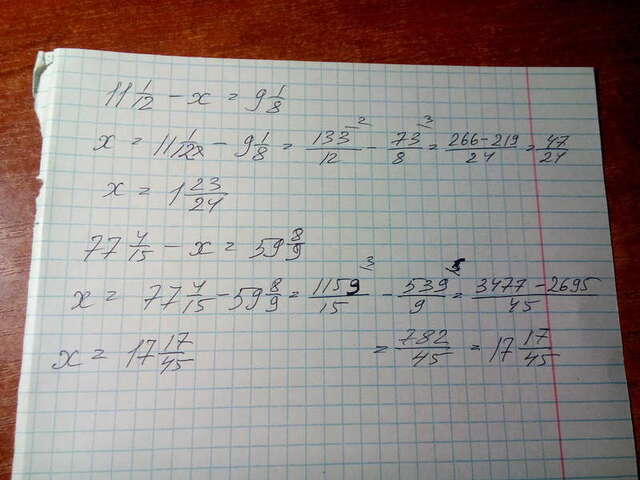 11 1/12 - x = 9 1/8
x = 11 1/12 - 9 1/8 = 133/12 ² - 73/8 ³ = 266-219/24 = 47/24
x = 1 23/24
77 4/15 - x = 59 8/9
x = 77 4/15 - 59 8/9 = 1159/15 ³ - 539/9 ⁵ = 3477-2695/45
x = 17 17/45 = 782/45 = 17 17/45